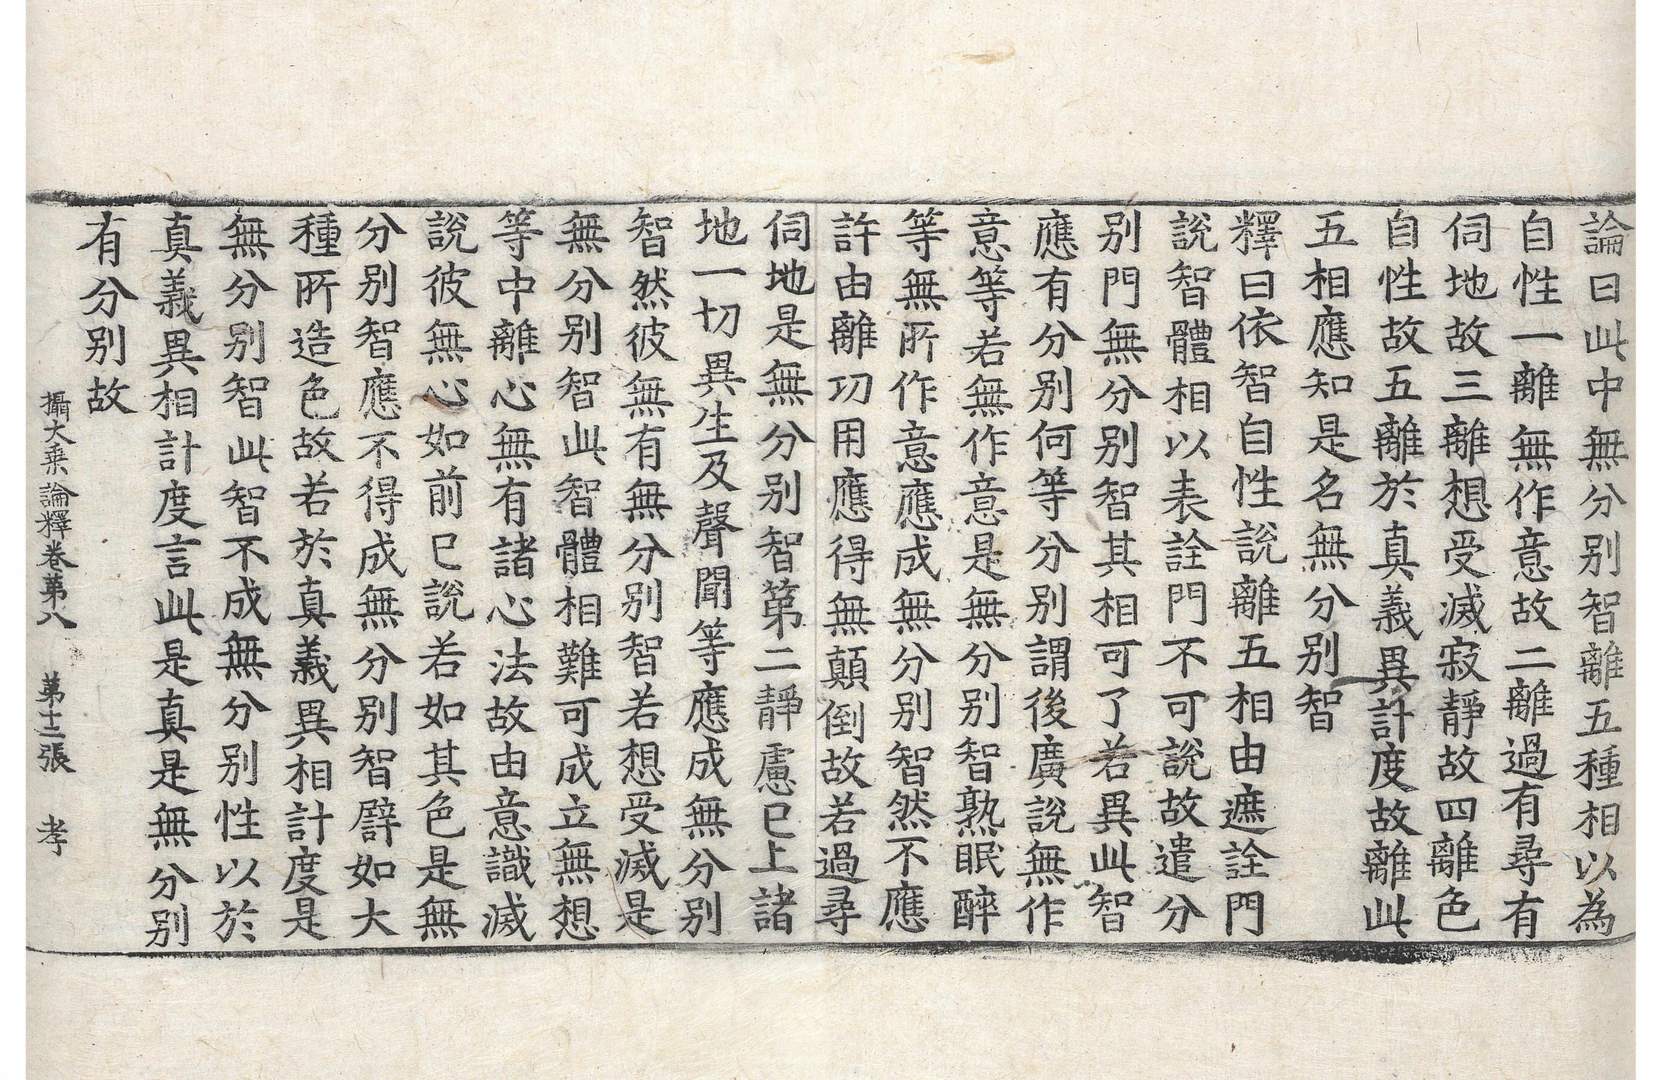 論曰此中無分別智離五種相以為
自性一離無作意故二離過有尋有
伺地故三離想受滅寂靜故四離色
自性故五離於真義異計度故離此
五相應知是名無分別智
釋曰依智自性說離五相由遮詮門
說智體相以表詮門不可說故遣分
別門無分別智其相可了若異此智
應有分別何等分別謂後廣說無作
意等若無作意是無分別智熟眠醉
等無所作意應成無分別智然不應
許由離功用應得無顛倒故若過尋
伺地是無分別智第二靜慮已上諸
地一切異生及聲聞等應成無分別
智然彼無有無分別智若想受滅是
無分別智此智體相難可成立無想
等中離心無有諸心法故由意識滅
說彼無心如前已說若如其色是無
分別智應不得成無分別智譬如大
種所造色故若於真義異相計度是
無分別智此智不成無分別性以於
真義異相計度言此是真是無分別
有分別故
攝大乘論釋卷第八 第十二張 孝